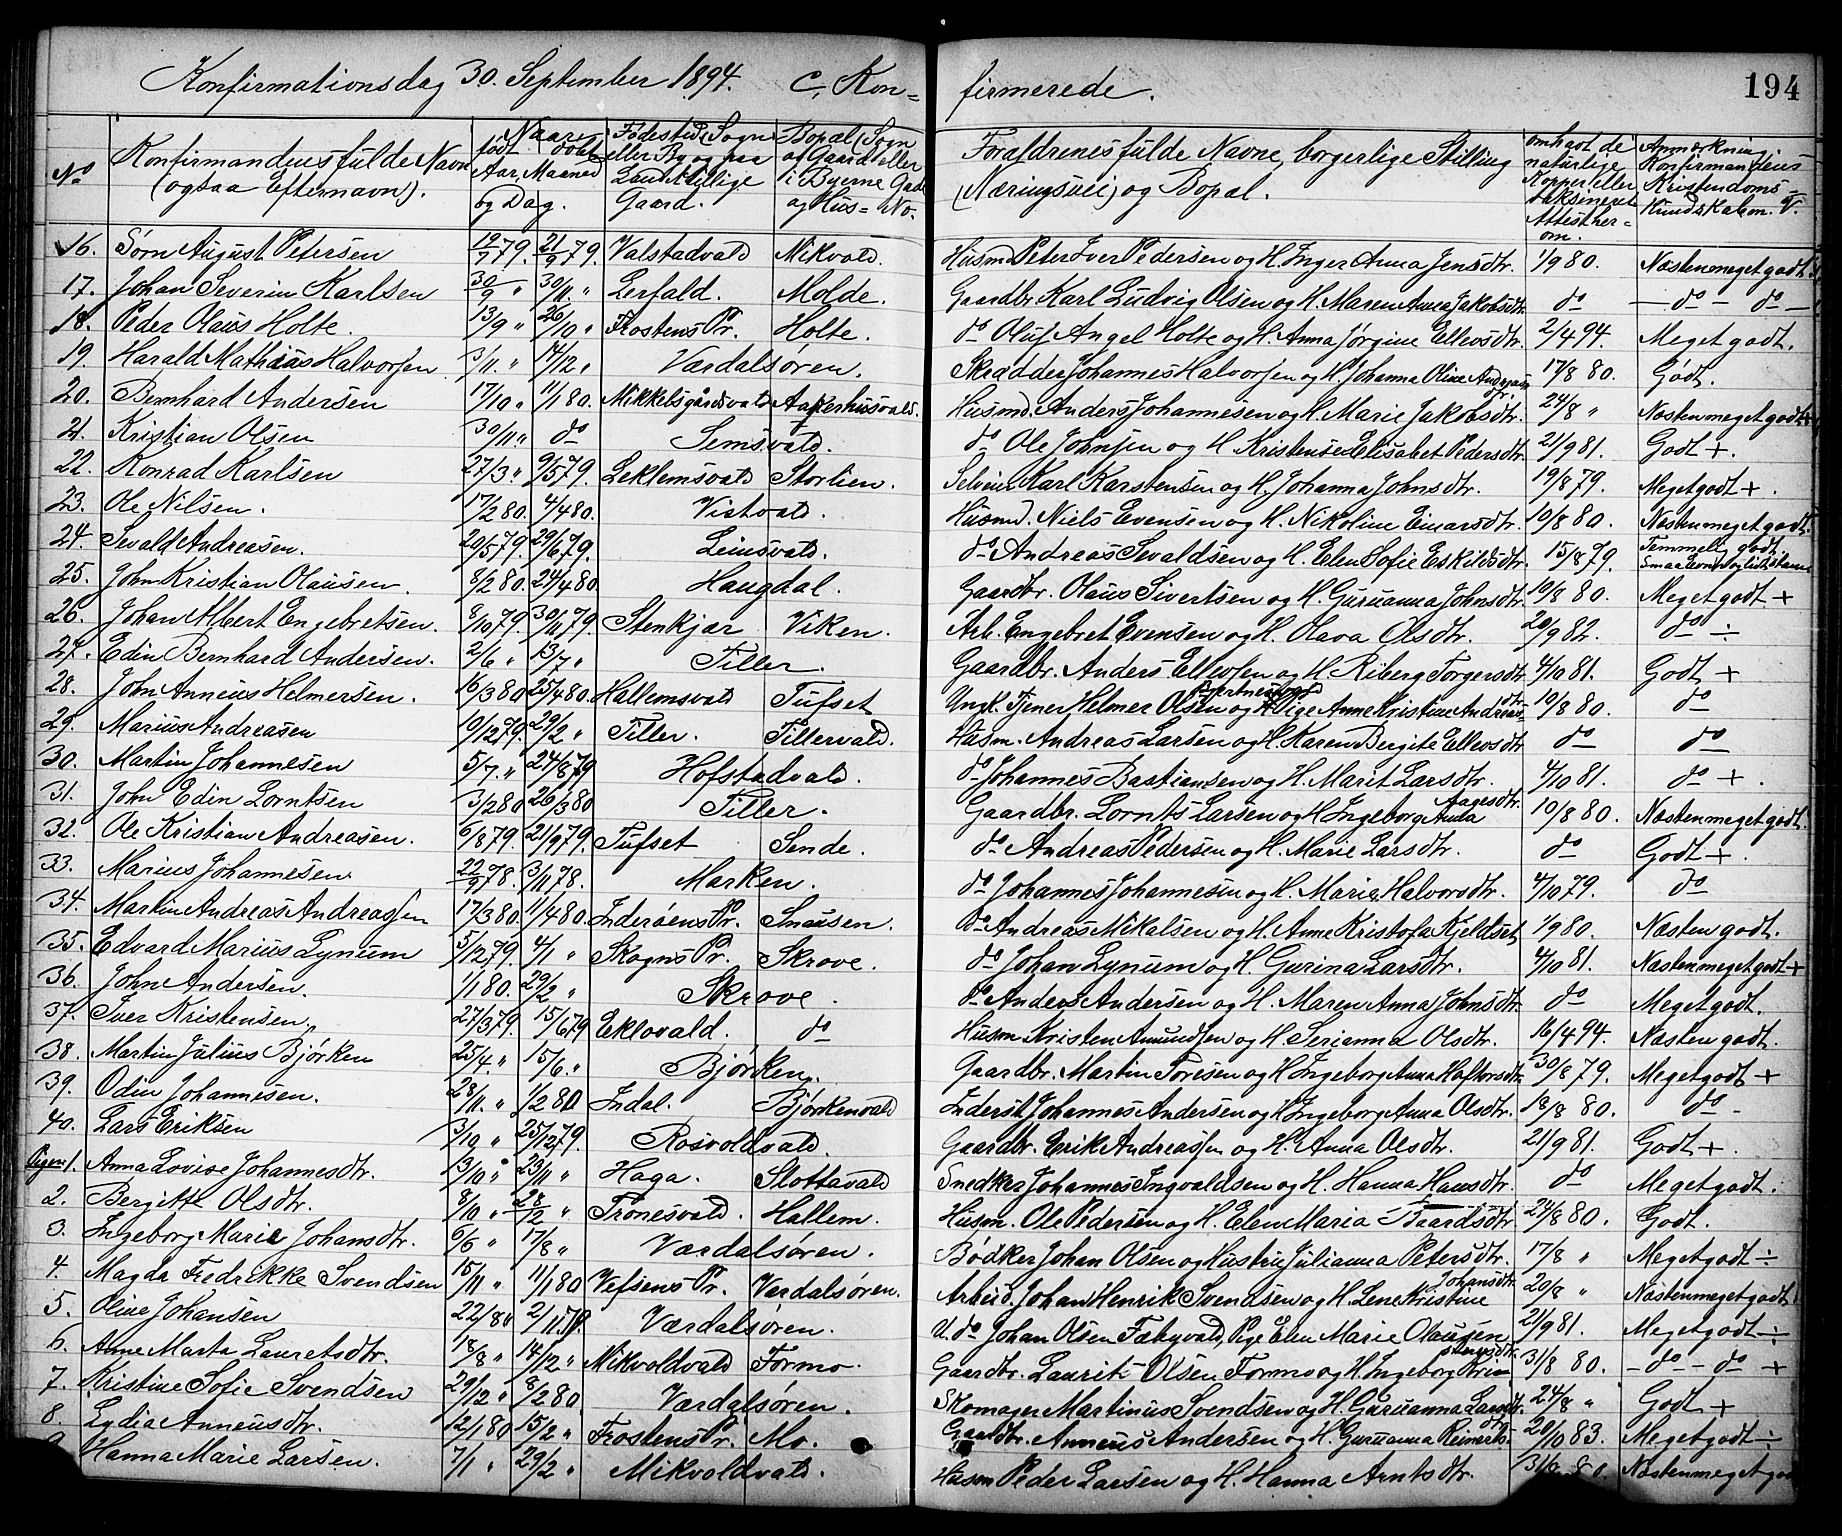 Konfirmationsdag 30. September 1894. C, Kon= firmerede. 194
No Konfirmandens fulde Navn (ogsaa Efternavn). Naar født døbt Aar Maaned og Dag. Fødested, Sogn eller By og paa Landet tillige Gaard. Bopæl, Sogn og Gaard eller i Byerne Gade og Hus=No. Forældrenes fulde Navne, borgerlige Stilling (Næringsvei) og Bopæl. omhavt de naturlige Kopper eller vaksineret Attest her-om. Anmerkning. Konfirmandens Kristendoms= Kundskaber.
16. Sørn August Petersen 19/7 79. 21/9 79. Valstadvald Mikvold. Husmd Peter Iver Pedersen og H. Inger Anna Jensdtr. 1/9 80. Næsten meget godt.
17. Johan Severin Karlsen 30/9 " 30/11. " Lerfald. Molde. Gaardbr. Karl Ludvig Olsen og H. Maren Anna Jakobsdtr. do — do — do —
18. Peder Olaus Holte. 13/9 " 26/10 " Frostens Pr. Holte. do Oluf Angel Holte og H. Anna Jørgine Ellevsdtr. 2/4 94. Meget godt.
19. Harald Mathias Halvorsen 3/11. " 14/12 " Værdalsøren. Skrædder Johannes Halvorsen og H. Johanna Oline Andreasdtr. 17/8 80. Godt.
20. Bernhard Andersen 17/10 " 11/1 80. Mikkelsgårdsvald Aakerhusvald. Husmd. Anders Johannesen og H. Marie Jakobsdtr. 24/8 " Næsten meget godt +
21. Kristian Olsen 30/11 " do Semsvald. do Ole Johnsen og H. Kristense Elisabet Pedersdtr. 21/9 81. Godt +.
22. Konrad Karlsen 27/3 " 9/5 79. Leklemsvald Storlien. Selvei Karl Karstensen og H. Johanna Johnsdtr. 19/8 79. Meget godt +.
23. Ole Nilsen. 17/2 80. 4/4 80. Vistvald. Husmd. Niels Evensen og H. Nikoline Einarsdtr. 10/8 80. Næsten meget godt.
24. Sevald Andreasen. 20/5 79. 29/6 79. Leinsvald. do Andreas Sevaldsen og H. Elen Sofie Eskildsdtr. 15/8 79. Temmelig godt Smaa Evner og
25. John Kristian Olausen 8/2 80. 24/4 80 Haugdal. Gaardbr. Olaus Sivertsen og H. Guruanna Johnsdtr. 10/8 80. Meget godt +
26. Johan Albert Engebretsen. 8/10 79. 30/11 79. Stenkjær Viken. Arb. Engebret Evensen og H. Olava Olsdtr. 20/9 82. do ÷
27. Edin Bernhard Andersen. 2/6 " 13/7 " Tiller. Gaardbr. Anders Ellevsen og H. Riberg Torgersdtr. 4/10 81. Godt +
28. John Anneus Helmersen. 16/3 80 25/4 80. Hallemsvald Tufset Ungk. Tjener Helmer Olsen og Pige Anne Kristine Andreasdtr. 10/8 80. do
29. Marius Andreasen 10/12 79. 29/2 " Tiller. Tillervald. Husm. Andreas Larsen og H. Karen Bergite Ellevsdtr do do
30. Martin Johannesen 5/7. " 24/8 79 Hofstadvald. do Johannes Bastiansen og H. Marit Larsdtr. 4/10 81. do +.
31. John Edin Lorntsen 3/2 80 26/3 80 Tiller. Gaardbr. Lornts Larsen og H. Ingeborg Anna Aagesdtr. 10/8 80. Næsten meget godt.
32. Ole Kristian Andreasen. 6/8 79. 21/9 79. Tufset Sende. do Andreas Pedersen og H. Marie Larsdtr. do Godt +.
33. Marius Johannesen 22/9 78. 3/11 78. Marken. do Johannes Johannesen og H. Marie Halvorsdtr. 4/10 79. do
34. Martin Andreas Andreassen 17/3 80. 11/4 80. Inderøens Pr. Snausen. do Andreas Mikalsen og H. Anne Kristofa Kjeldset 1/9 80. Næsten godt.
35. Edvard Marius Lynum 5/12 79. 4/1 " Skogns Pr. Skrove. do Johan Lynum og H. Gurina Larsdtr. 4/10 81. Næsten meget godt +
36. John Andersen. 1/1 80. 29/2 " Skrove. do Anders Andersen og H. Maren Anna Johnsdtr. do Meget godt.
37. Iver Kristensen. 27/3 79. 15/6 79 Eklovald. do Husm Kristen Amundsen og H. Serianna Olsdtr. 16/4 94. Næsten godt.
38. Martin Julius Bjørken 25/4 " 15/6. " Bjørken. Gaardbr. Martin Toresen og H. Ingeborg Anna Haftorsdtr. 30/8 79. Meget godt +
39. Odin Johannesen. 28/11. " 1/2 80 Indal. Bjørkenvald Inderst Johannes Andersen og H. Ingeborg Anna Olsdtr. 18/8 80. do
40. Lars Eriksen 3/10 " 25/12 79. Rosvoldvald. Gaardbr. Erik Andreassen og H. Anna Olsdtr. 21/9 81. Godt +.
Piger 1. Anna Lovise Johannesdtr. 13/10 " 23/11 " Haga. Slottavald Snedker Johannes Ingvaldsen og H. Hanna Hansdtr. do Meget godt.
2. Bergitte Olsdtr. 8/10 " 28/12 " Tronesvald. Hallem. Husm. Ole Pedersen og H. Elen Maria Baardsdtr. 24/8 80. Godt.
3. Ingeborg Marie Johansdtr. 6/6 " 17/8 " Værdalsøren. Bødker Johan Olsen og Hustru Julianna Petersdtr. 17/8 " Meget godt ÷
4. Magda Fredrikke Svendsen 15/11 " 11/1 80 Vefsens Pr. Værdalsøren. Arbeid. Johan Henrik Svendsen og H. Lene Kristine Johansdtr. 20/8 " Næsten meget godt
5. Oline Johansen 22/8 " 2/11 79. Værdalsøren. U. do Johan Olsen Fæbyvald, Pige Elen Marie Olausen 21/9 81. Meget godt ÷
6. Anne Marta Lauretsdtr. 18/8 " 14/12 " Mikvoldvald Formo. Gaardbr. Laurits Olsen Formo og H. Ingeborg 31/8 80. – do – do +
7. Kristine Sofie Svendsen 29/12 " 8/2 80. Værdalsøren. Skomager Martinus Svendsen og H. Guruanna Larsdtr. 24/8 " Godt +
8. Lydia Anneusdtr. 12/1 80 15/2 " Frostens Pr. Mo. Gaardbr. Anneus Andersen og H. Guruanna Reinertsdtr. 20/10 83. Meget godt ÷
9. Hanna Marie Larsen. 7/1 " 29/2 " Mikvoldvald. Husm Peder Larsen og H. Hanna Arntsdtr. 31/8 80. Næsten meget godt